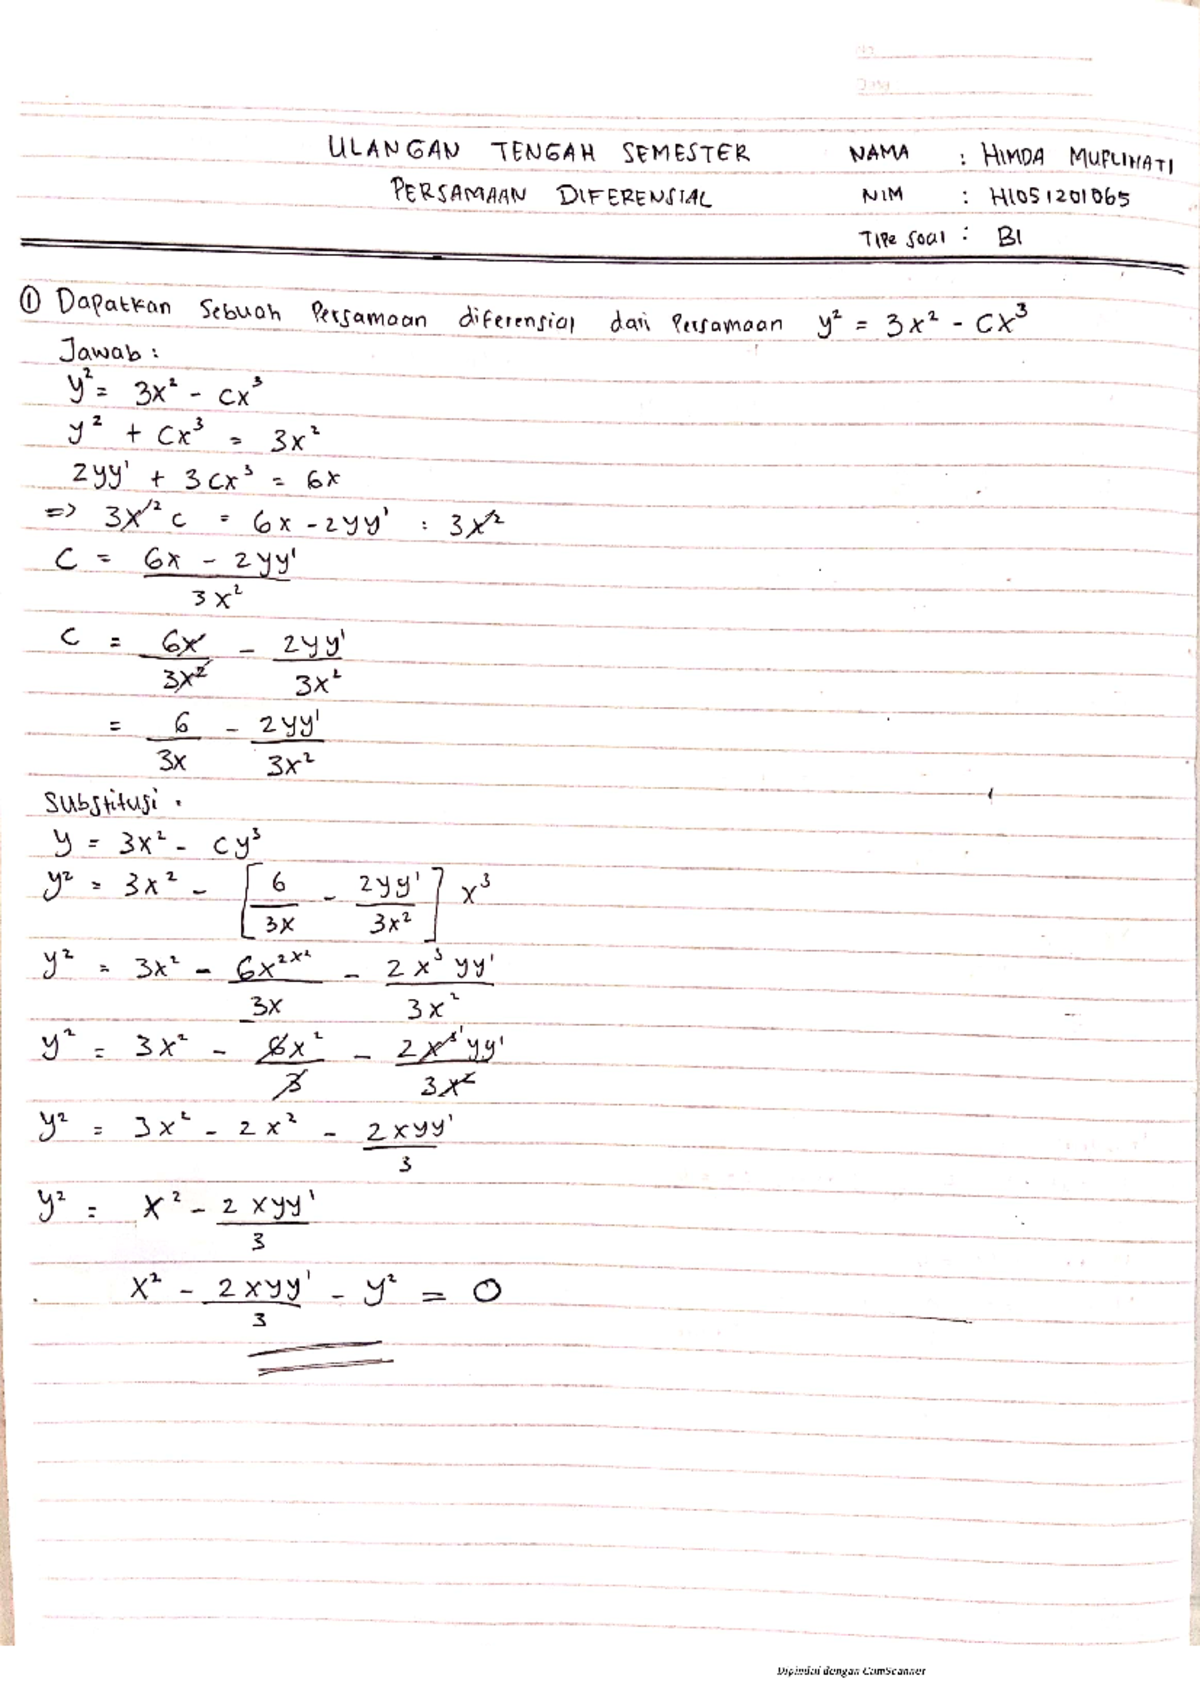 No
Day
ULANGAN TENGAH SEMESTER
PERSAMAAN DIFERENSIAL
NAMA : HIMDA MUFLIHATI
NIM : H1051201065
TIPe soal : B1
① Dapatkan Sebuah Persamaan diferensial dari Persamaan y² = 3x² - Cx³
Jawab :
y² = 3x² - cx³
y² + cx³ = 3x²
2yy' + 3cx³ = 6x
=> 3x² c = 6x - 2yy' : 3x²
C = (6x - 2yy') / 3x²
C = 6x/3x² - 2yy'/3x²
= 6/3x - 2yy'/3x²
Substitusi .
y = 3x² - cy³
y² = 3x² - [6/3x - 2yy'/3x²] x³
y² = 3x² - 6x²ˣ²/3x - 2x³yy'/3x²
y² = 3x² - 6x²/3 - 2x³'yy'/3x²
y² = 3x² - 2x² - 2xyy'/3
y² = x² - 2xyy'/3
x² - 2xyy'/3 - y² = 0
Dipindai dengan CamScanner